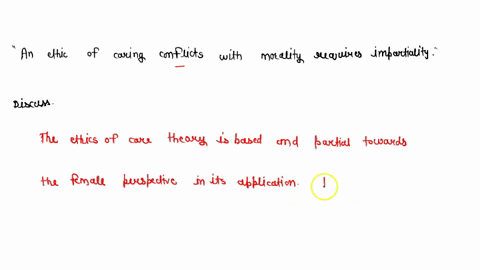 "An ethic of caring conflicts with morality requires impartiality."
Discuss.
The ethics of care theory is based and partial towards
the female perspective in its application. I